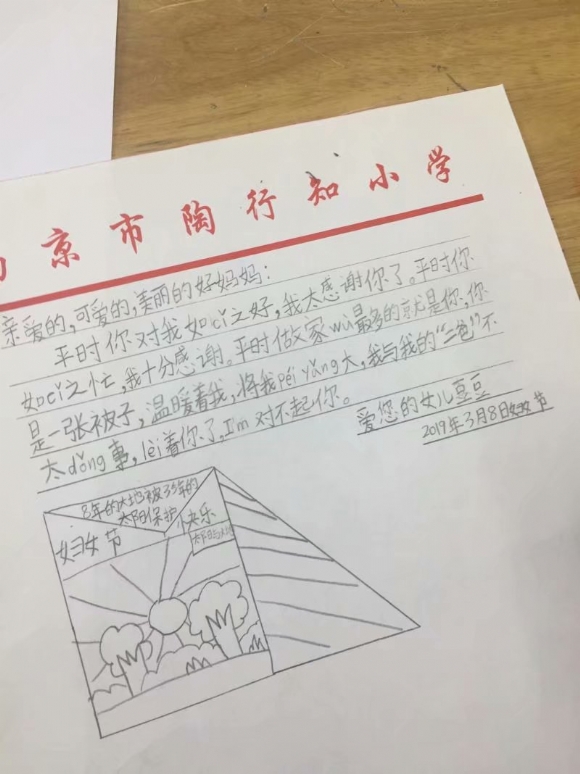 京市陶行知小学
亲爱的，可爱的，美丽的好妈妈：
平时你对我如cǐ之好，我太感谢你了。平时你
如cǐ之忙，我十分感谢。平时做家wù最多的就是你，你
是一张被子，温暖着我，将我péi yǎng大，我与我的“二爸”不
太dǒng事，lèi着你了，I'm 对不起你。
爱您的女儿豆豆
2019年3月8日妇女节
8年的大地被35年的
太阳保护
快乐
妇女节